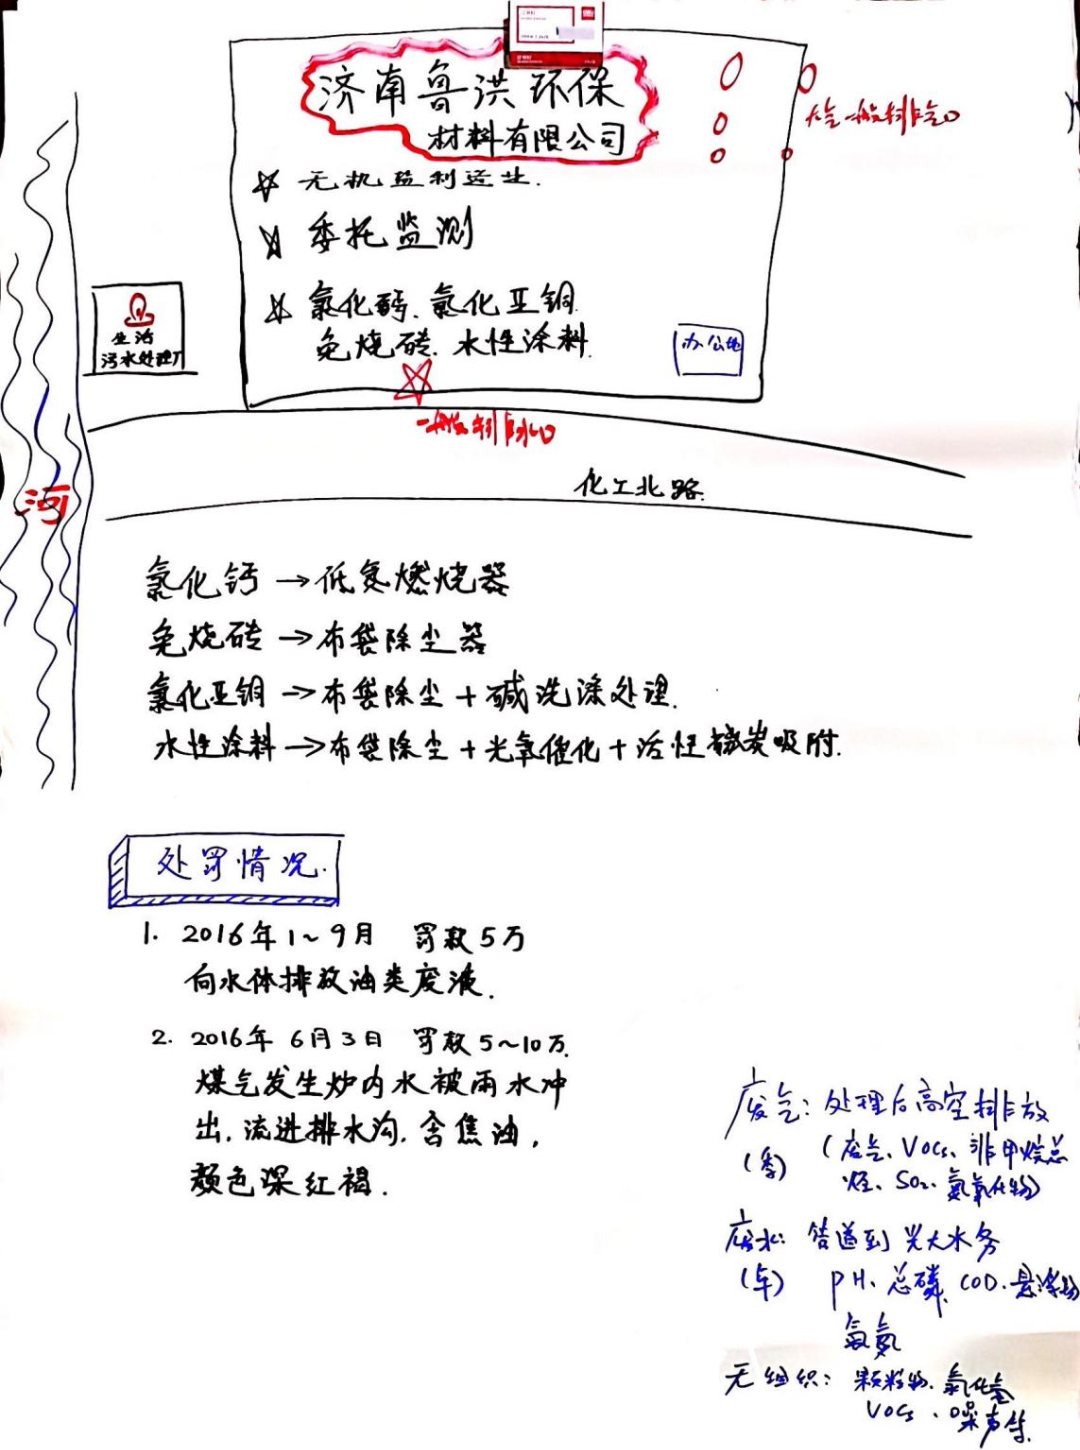 济南鲁洪环保
材料有限公司
无机盐制造业.
委托监测
氯化钙、氯化亚铜
免烧砖、水性涂料
办公楼
废气一般排气口
生活
污水处理厂
一般排水口
化工北路
河
氯化钙→低氮燃烧器
免烧砖→布袋除尘器
氯化亚铜→布袋除尘+碱洗涤处理.
水性涂料→布袋除尘+光氧催化+活性碳炭吸附.
处罚情况.
1. 2016年1~9月 罚款5万
向水体排放油类废液.
2. 2016年6月3日 罚款5~10万.
煤气发生炉内水被雨水冲
出,流进排水沟,含焦油,
颜色深红褐.
废气:处理后高空排放
(季) (废气、VOCs、非甲烷总
烃、SO₂、氮氧化物)
废水:管道到光大水务
(年) PH、总磷、COD、悬浮物
氨氮
无组织:颗粒物、氯化氢
VOCs、噪声等.